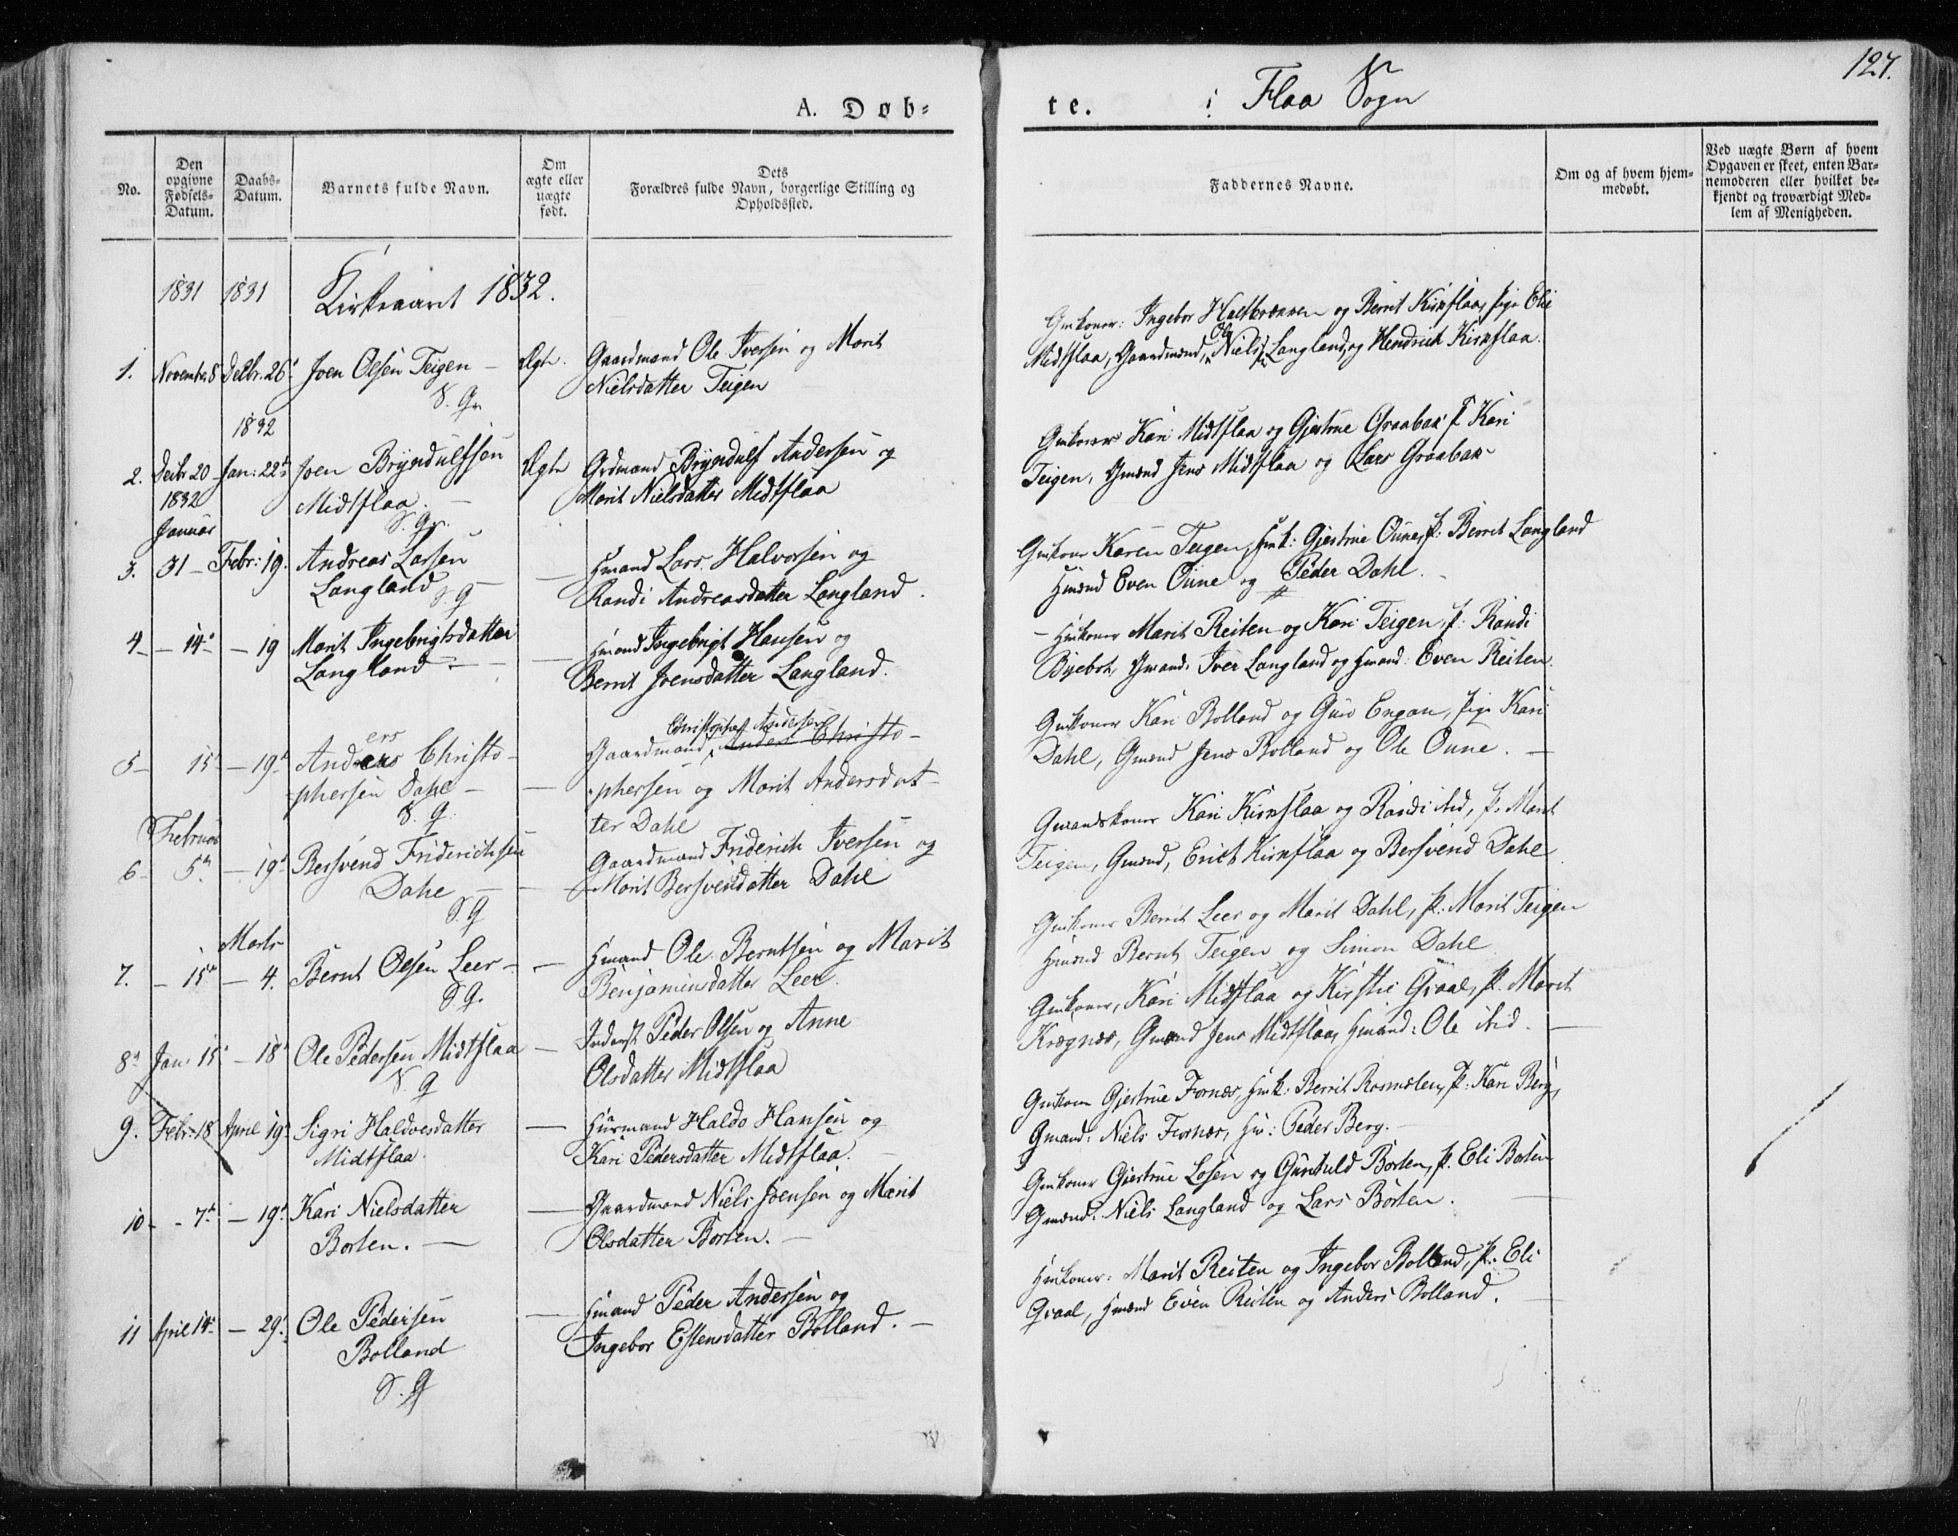 127.
A. Døb-
te. i Flaa Sogn
No.
Den
opgivne
Fødsels-
Datum.
Daabs-
Datum.
Barnets fulde Navn.
Om
ægte eller
uægte
født.
Dets
Forældres fulde Navn, borgerlige Stilling og
Opholdssted.
Faddernes Navne.
Om og af hvem hjem-
medøbt.
Ved uægte Børn af hvem
Opgaven er skeet, enten Bar-
nemoderen eller hvilket be-
kjendt og troværdigt Med-
lem af Menigheden.
1831 1831 Kirkeaaret 1832.
1. Novembr. 8 Decbr. 26 Joen Olsen Teigen - Ægte. Gaardmand Ole Iversen og Marit
Nielsdatter Teigen
Gmkoner: Ingebor Haltbrænen og Berrit Kirkflaa, pige Eli
Midtflaa, Gaardmænd, Ole Niels Langland, og Hendrich Kirkflaa.
1832
2. Decbr 20 Jan: 22 Joen Bryndulfsen Ægte Grdmand Bryndulf Andersen og
Midtflaa. Marit Nielsdatter Midtflaa
Gmkoner Kari Midtflaa og Gjertrue Graabak p Kari
Teigen, Gmænd Jens Midtflaa og Lars Graabak
1832
Januar
3. 31 - Febr: 19. Andreas Larsen - Hmand Lars Halvorsen og
Langland Randi Andreasdatter Langland.
Gmkoner Karen Teigen, Hmk: Gjertrue Oune, p: Berrit Langland
Hmænd Even Oune og Peder Dahl.
4 - 14 - 19 Marit Ingebrigtsdatter - Hmand Ingebrigt Hansen og
Langland - Berrit Joensdatter Langland.
- Hmkoner Marit Reiten og Kari Teigen, p: Randi
Gmænd: Iver Langland og Hmand: Even Reiten.
5 - 15 - 19 Anders Christo- Gaardmand Christopher Andersen Anders Christo-
phersen Dahl - - phersen og Marit Andersdat-
ter Dahl
Gmkoner Kari Bolland og Guro Engan, pige Kari
Dahl, Gmænd Jens Bolland og Ole Oune. -
Februar
6 - 5 - 19 Bersvend Friderichsen Gaardmand Friderich Iversen og
Dahl - - Marit Bersvendatter Dahl
Gmandskoner Kari Kirkflaa og Randi ibid, p. Marit
Teigen, Gmænd, Erich Kirkflaa og Bersvend Dahl
Marts
7. - 15 - 4. Bernt Olsen Leer - - Hmand Ole Berntsen og Marit
Benjaminsdatter Leer.
Gmkoner Berrit Leer og Marit Dahl, p. Marit Teigen
Hmænd Bernt Teigen og Simon Dahl
8 Jan 15 - 18 Ole Pedersen Midtflaa - Inderst Peder Olsen og Anne
Olsdatter Midtflaa
Gmkoner, Kari Midtflaa og Kirstie Graal, p. Marit
Krognæs, Gmænd Jens Midtflaa, Hmand: Ole ibid. -
9. Febr: 18 April 19 Sigri Haldosdatter - Huusmand Haldo Hansen og
Midtflaa. Kari Pedersdatter Midtflaa. -
Gmkon Gjertrue Fornæs, Hmk: Berrit Rosmælen, p: Kari Berg,
Gmand: Niels Fornæs, Hm: Peder Berg. -
10 - - 7 - 19 Kari Nielsdatter - Gaardmand Niels Joensen og Marit
Borten. - Olsdatter Borten. -
Gmkoner Gjertrue Losen og Gunhild Borten, p. Eli Borten
Gmænd: Niels Langland og Lars Borten.
11 April 14 - 29. Ole Pedersen - Hmand Peder Andersen og
Bolland Ingebor Estensdatter Bolland. -
Hmkoner: Marit Reiten og Ingebor Bolland, p: Eli
Graal, Hmænd Even Reiten og Anders Bolland.